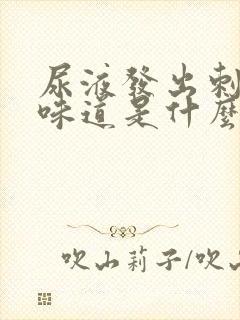 尿液發出刺
味道是什麼
吹山莉子/吹山